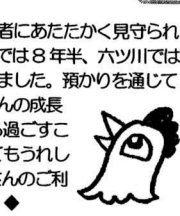 者にあたたかく見守られ
では8年半、六ツ川では
ました。預かりを通じて
んの成長
過ごすこ
てもうれし
さんのご利
◆